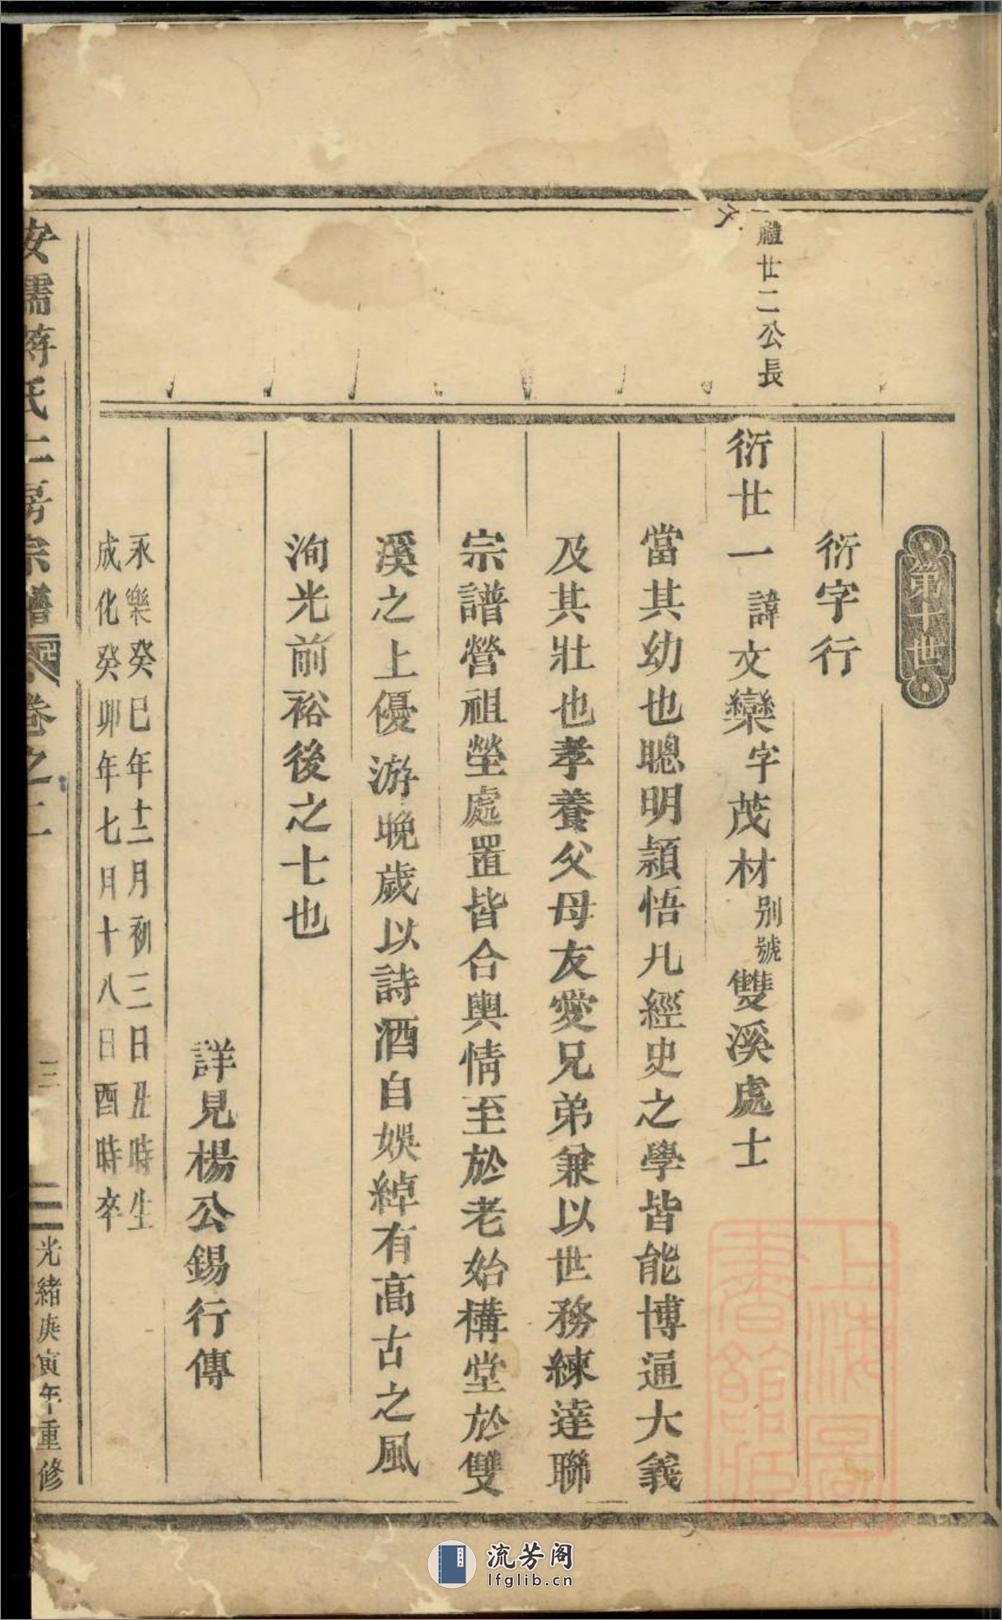 第十世
衍字行
禮廿二公長
衍廿一諱文欒字茂材別號雙溪處士
當其幼也聰明穎悟凡經史之學皆能博通大義
及其壯也孝養父母友愛兄弟兼以世務練達聯
宗譜營祖塋處置皆合輿情至於老始構堂於雙
溪之上優游晚歲以詩酒自娛綽有高古之風
洵光前裕後之士也
詳見楊公錫行傳
永樂癸巳年十二月初三日丑時生
成化癸卯年七月十八日酉時卒
安儒蔣氏二房宗譜 卷之二
三
光緒庚寅年重修
上海圖書館藏
流芳阁
lfglib.cn